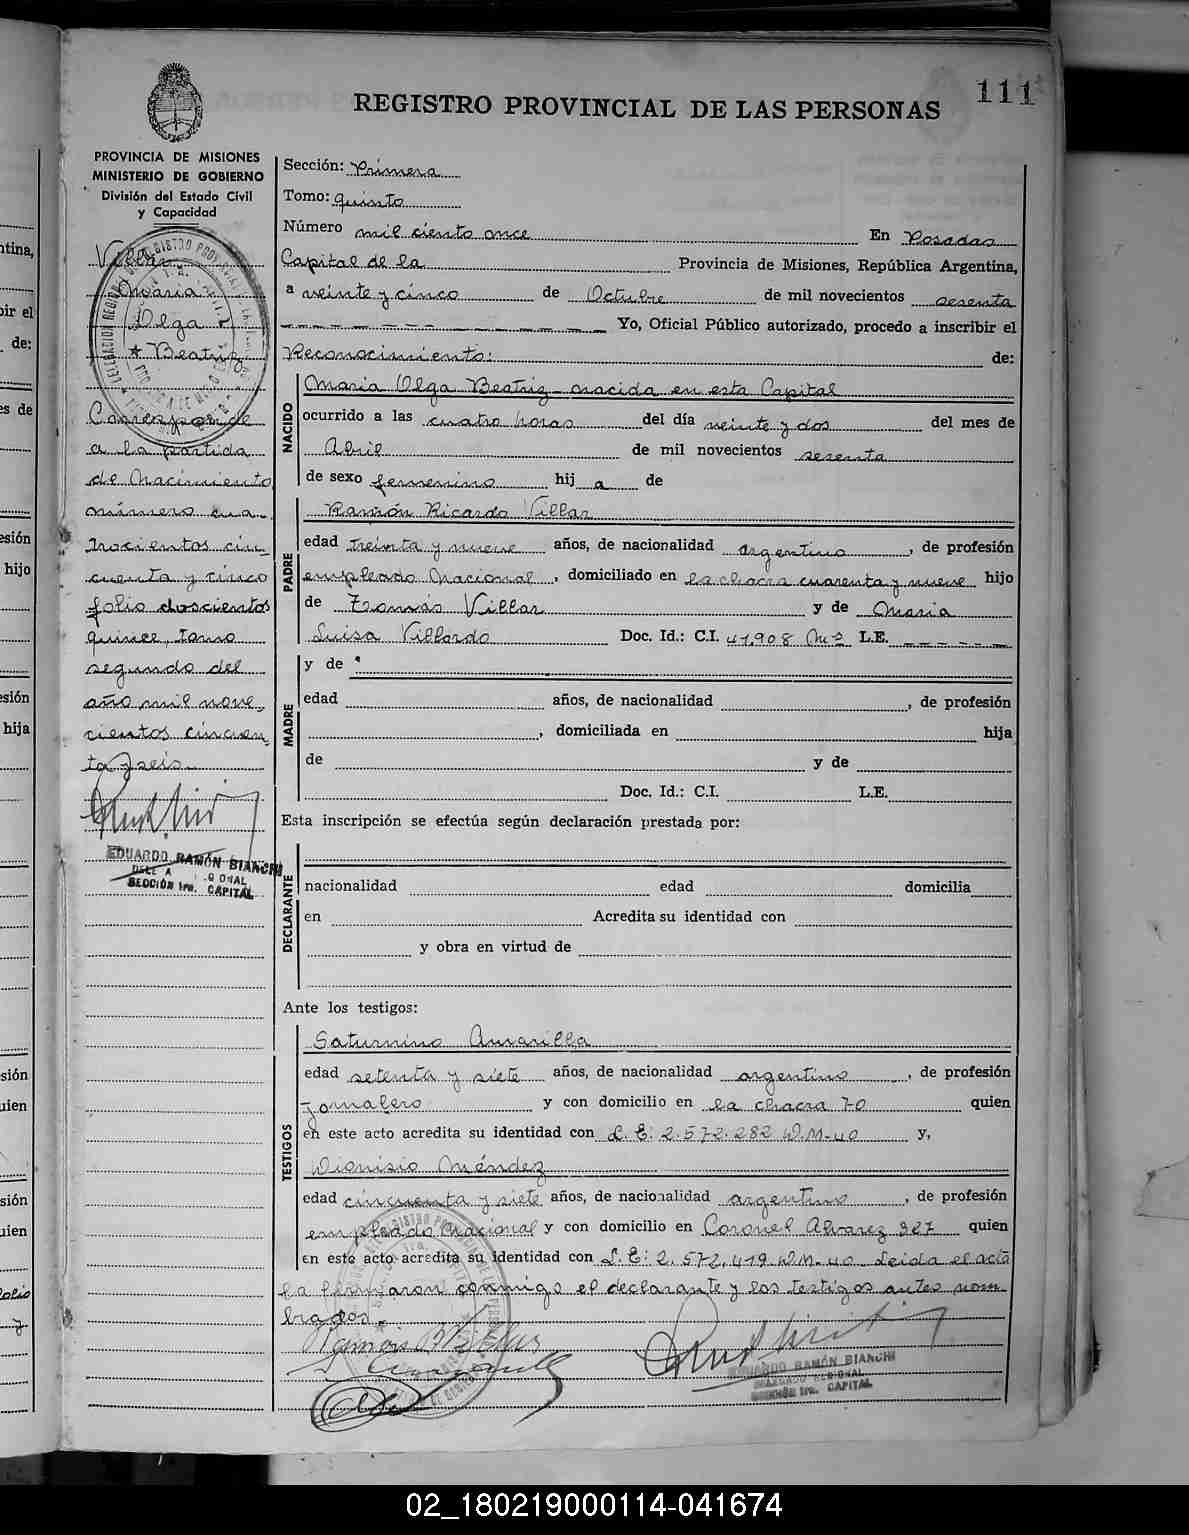 111
REGISTRO PROVINCIAL DE LAS PERSONAS
PROVINCIA DE MISIONES
MINISTERIO DE GOBIERNO
División del Estado Civil
y Capacidad
Villar
Maria
Olga
Beatriz
Corresponde
a la partida
de Nacimiento
número cua-
trocientos cin-
cuenta y cinco
folio doscientos
quince, tomo
segundo del
año mil nove-
cientos cincuen
ta y seis.
EDUARDO RAMÓN BIANCHI
SECCIÓN 1ra. CAPITAL
Sección: Primera
Tomo: quinto
Número mil ciento once En Posadas
Capital de la Provincia de Misiones, República Argentina,
a veinte y cinco de Octubre de mil novecientos sesenta
Yo, Oficial Público autorizado, procedo a inscribir el
Reconocimiento: de:
NACIDO
Maria Olga Beatriz - nacida en esta Capital
ocurrido a las cuatro horas del día veinte y dos del mes de
Abril de mil novecientos sesenta
de sexo femenino hij a de
PADRE
Ramón Ricardo Villar
edad treinta y nueve años, de nacionalidad argentino, de profesión
empleado Nacional, domiciliado en la chacra cuarenta y nueve hijo
de Tomás Villar y de Maria
Luisa Villordo Doc. Id.: C.I. 41.908 Ms L.E.
MADRE
y de
edad años, de nacionalidad , de profesión
, domiciliada en hija
de y de
Doc. Id.: C.I. L.E.
Esta inscripción se efectúa según declaración prestada por:
DECLARANTE
nacionalidad edad domicilia
en Acredita su identidad con
y obra en virtud de
Ante los testigos:
TESTIGOS
Saturnino Amarilla
edad setenta y siete años, de nacionalidad argentino, de profesión
jornalero y con domicilio en la chacra 70 quien
en este acto acredita su identidad con L.E: 2.572.282 D.M-40 y,
Dionisio Méndez
edad cincuenta y siete años, de nacionalidad argentino, de profesión
empleado Nacional y con domicilio en Coronel Alvarez 327 quien
en este acto acredita su identidad con L.E: 2.572.419 D.M-40. Leida el acta
la firmaron conmigo el declarante y los testigos antes nom
brados.
EDUARDO RAMÓN BIANCHI
DELEGADO REGIONAL
SECCIÓN 1ra. CAPITAL
02_180219000114-041674